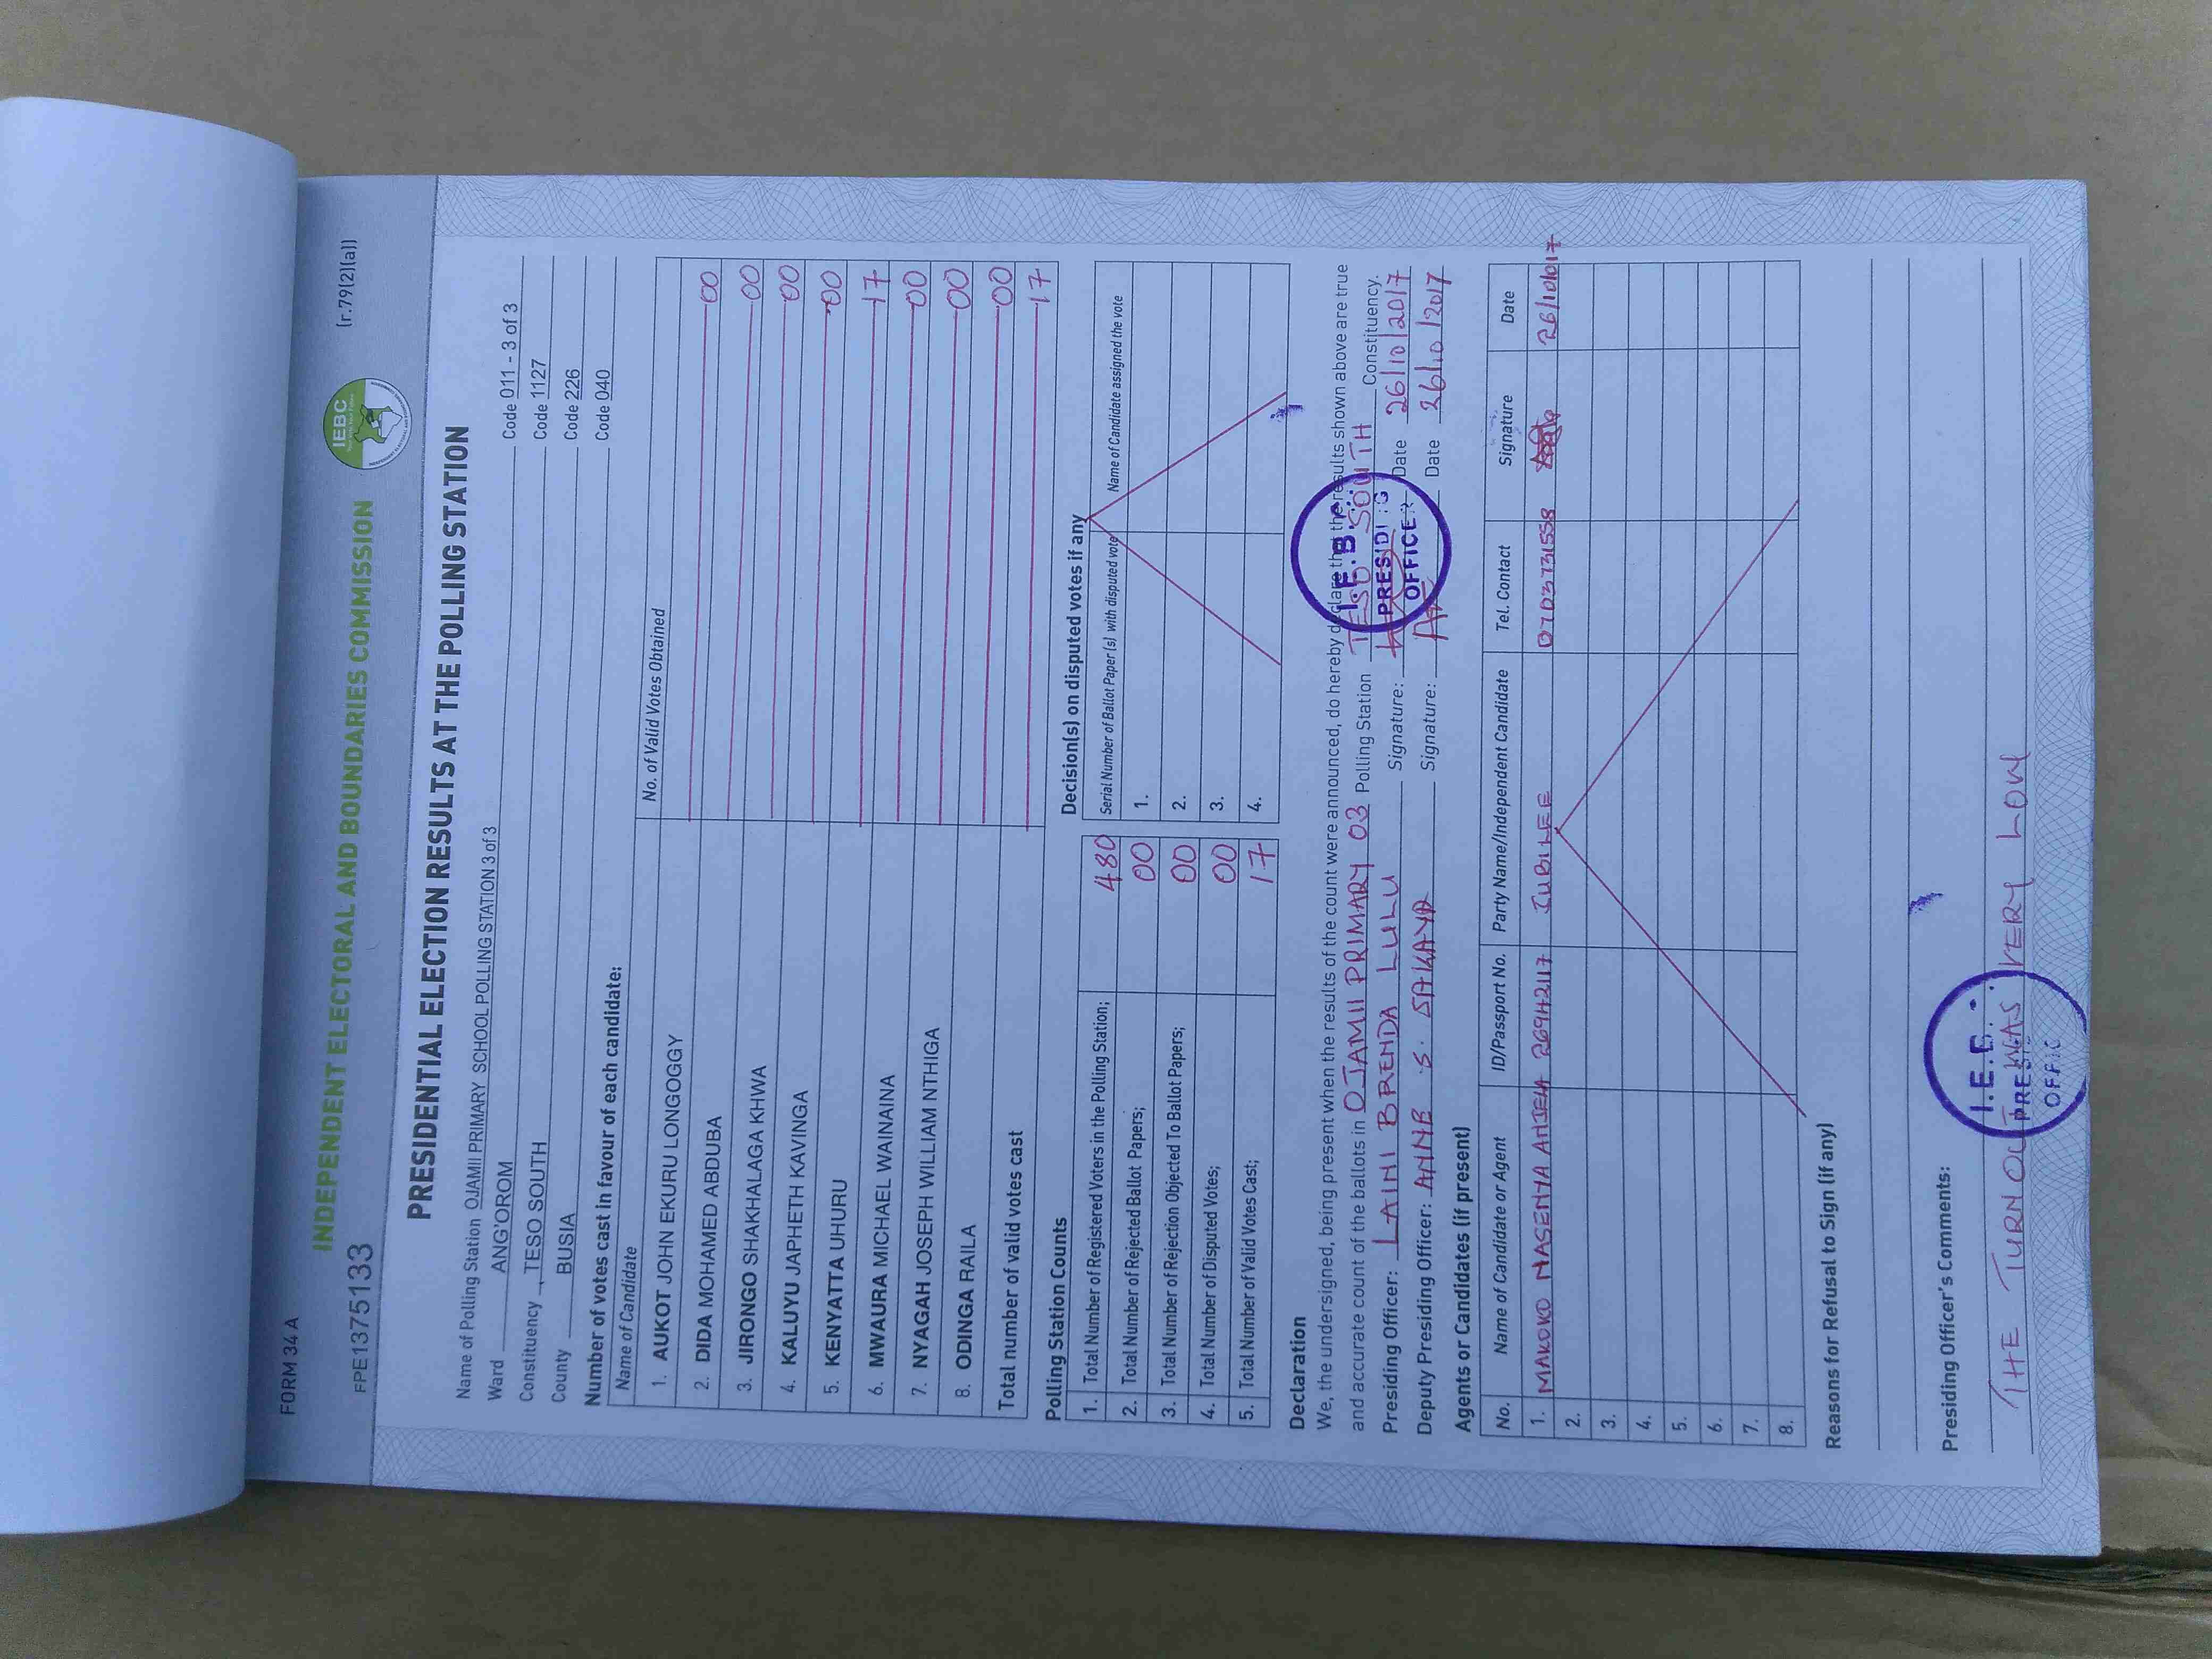 FORM 34 A
(r.79(2)(a))
FPE1375133
IEBC
INDEPENDENT ELECTORAL AND BOUNDARIES COMMISSION
PRESIDENTIAL ELECTION RESULTS AT THE POLLING STATION
Name of Polling Station OJAMII PRIMARY SCHOOL POLLING STATION 3 of 3 Code 011 - 3 of 3
Ward ANG'OROM Code 1127
Constituency TESO SOUTH Code 226
County BUSIA Code 040
Number of votes cast in favour of each candidate:
Name of Candidate No. of Valid Votes Obtained
1. AUKOT JOHN EKURU LONGOGGY 00
2. DIDA MOHAMED ABDUBA 00
3. JIRONGO SHAKHALAGA KHWA 00
4. KALUYU JAPHETH KAVINGA 00
5. KENYATTA UHURU 17
6. MWAURA MICHAEL WAINAINA 00
7. NYAGAH JOSEPH WILLIAM NTHIGA 00
8. ODINGA RAILA 00
Total number of valid votes cast 17
Polling Station Counts
1. Total Number of Registered Voters in the Polling Station; 480
2. Total Number of Rejected Ballot Papers; 00
3. Total Number of Rejection Objected To Ballot Papers; 00
4. Total Number of Disputed Votes; 00
5. Total Number of Valid Votes Cast; 17
Decision(s) on disputed votes if any
Serial Number of Ballot Paper(s) with disputed vote Name of Candidate assigned the vote
1.
2.
3.
4.
Declaration
We, the undersigned, being present when the results of the count were announced, do hereby declare that the results shown above are true
and accurate count of the ballots in OJAMII PRIMARY 03 Polling Station TESO SOUTH Constituency.
Presiding Officer: LAINI BRENDA LULU Signature: Date 26/10/2017
Deputy Presiding Officer: ANNE S. SAKAYA Signature: Date 26/10/2017
I.E.B.C. PRESIDING OFFICER
Agents or Candidates (if present)
No. Name of Candidate or Agent ID/Passport No. Party Name/Independent Candidate Tel. Contact Signature Date
1. MAKOKO NASENYA 26942117 JUBILEE 0703731558 26/10/017
2.
3.
4.
5.
6.
7.
8.
Reasons for Refusal to Sign (if any)
Presiding Officer's Comments:
THE TURNOUT WAS VERY LOW
I.E.B.C. PRESIDING OFFIC